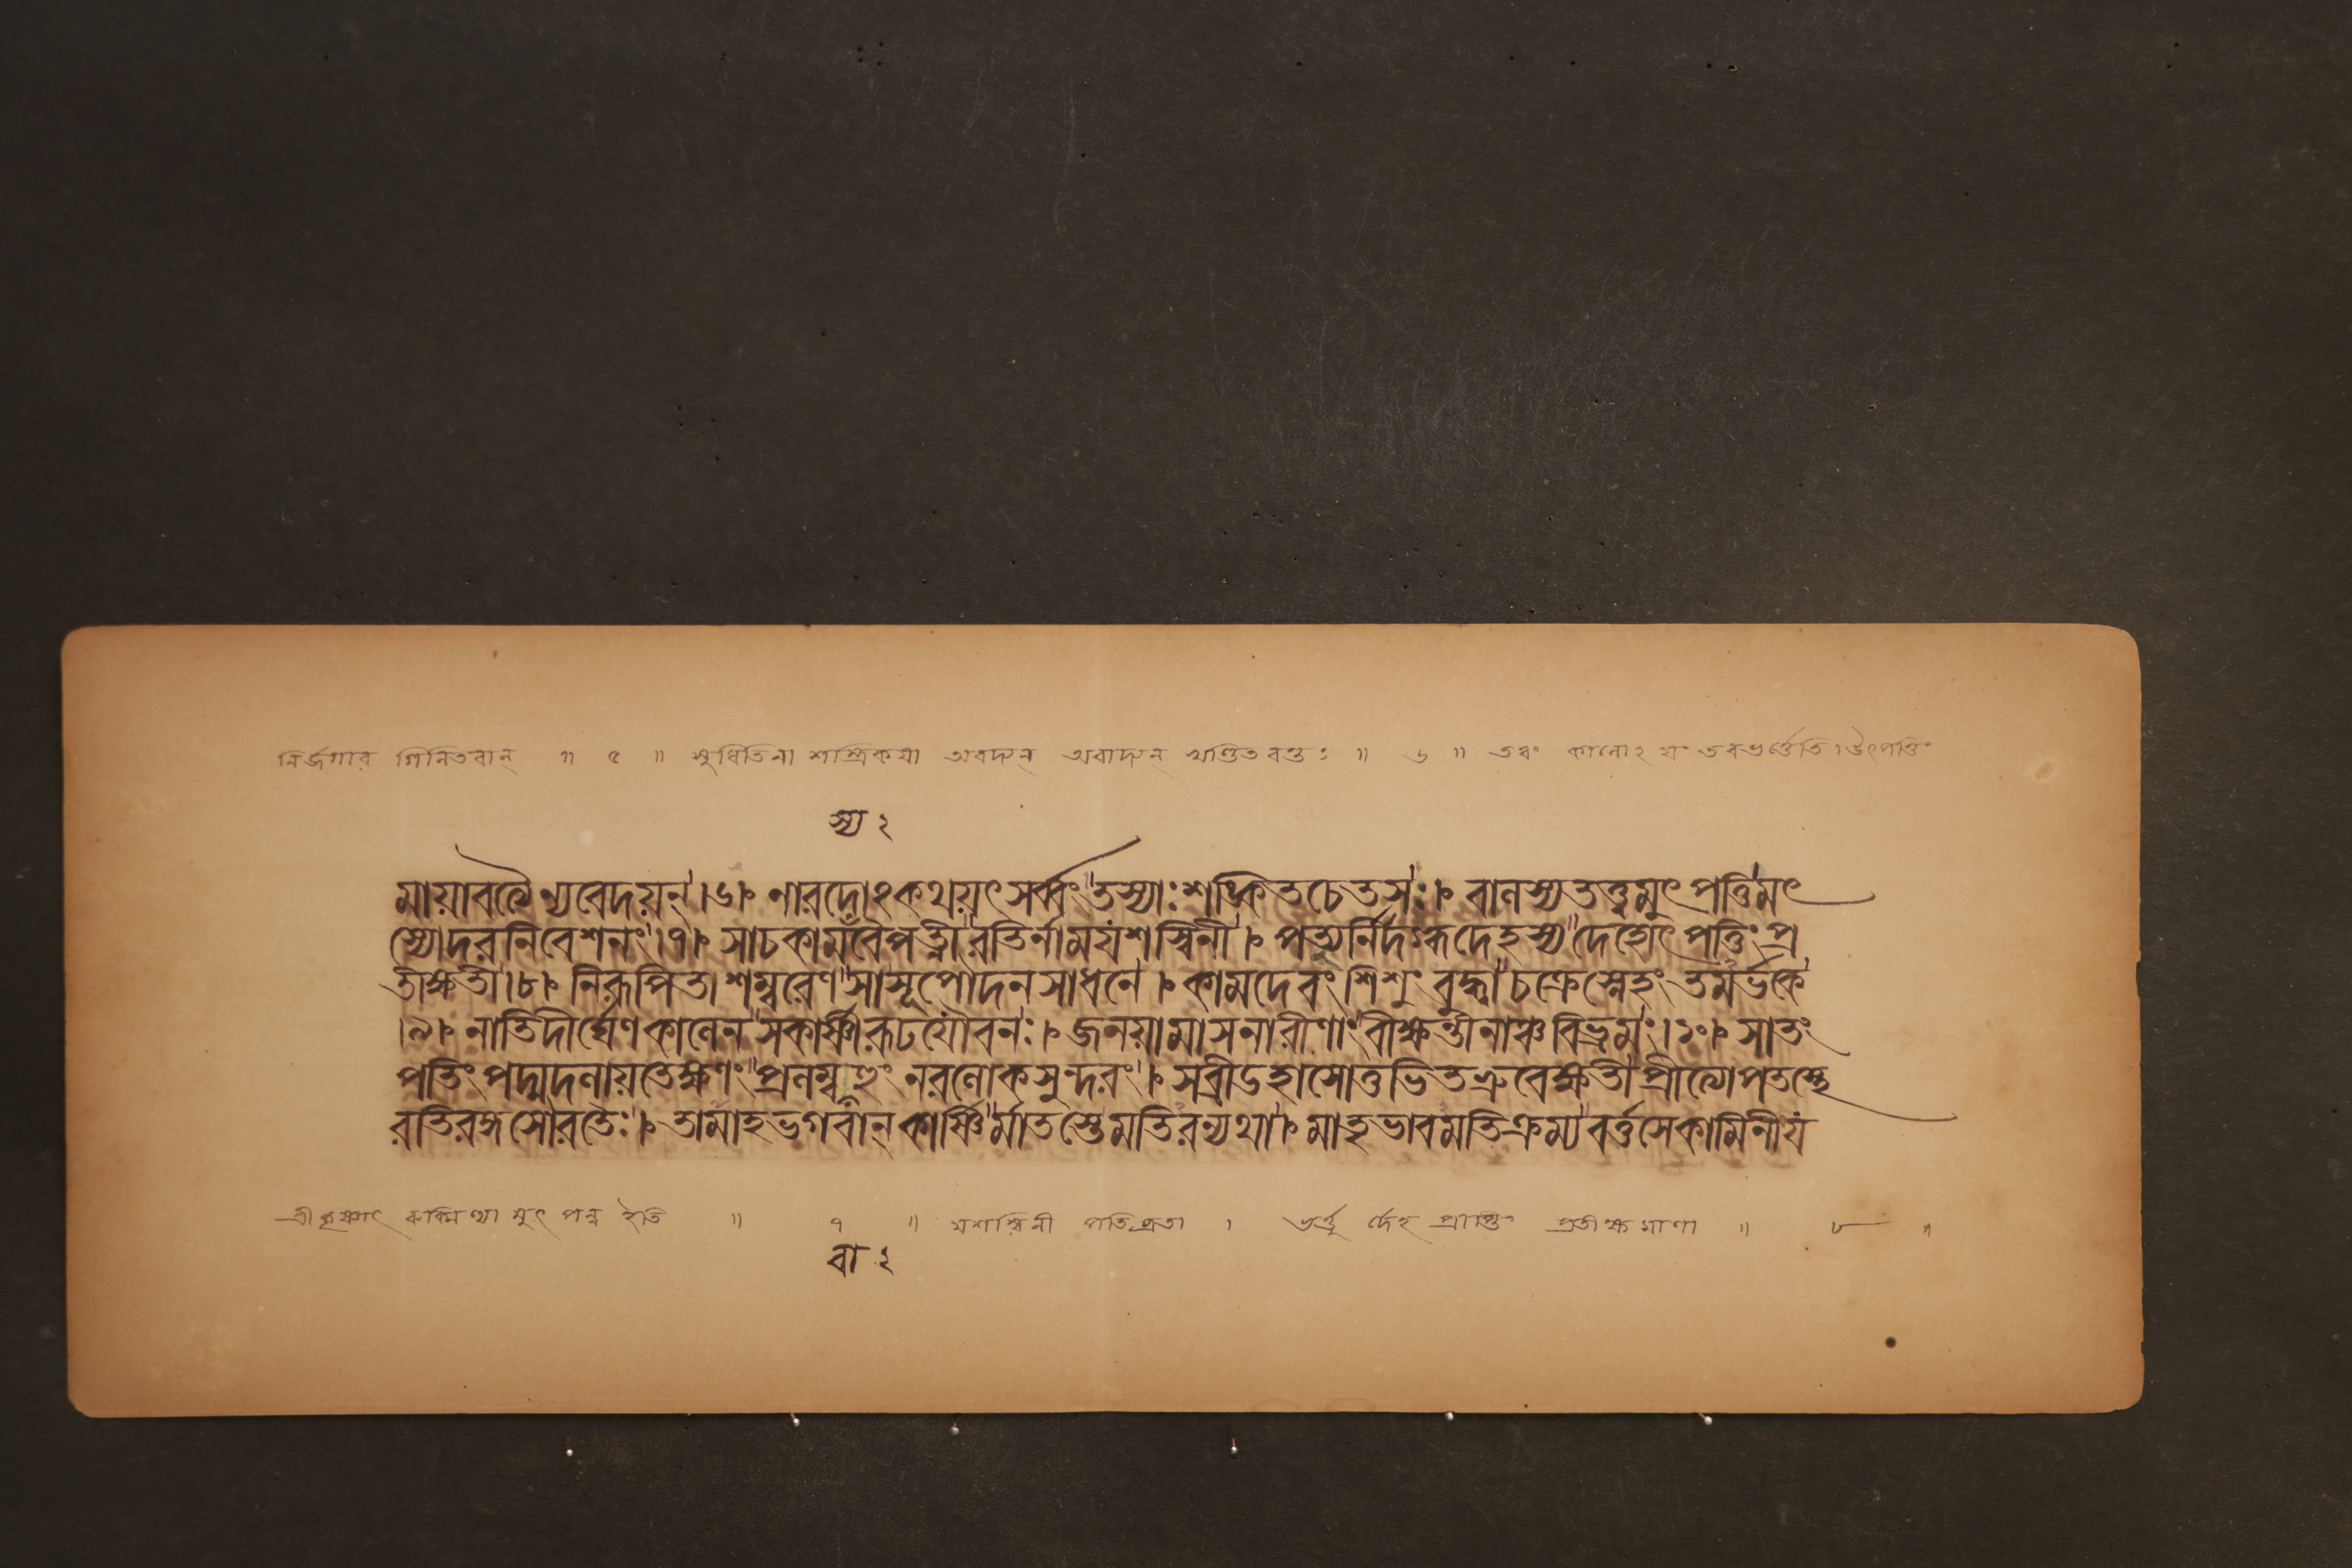 নির্জগার গিনিতবান্ ॥ ৫ ॥ সুধিতিনা শস্ত্রিকয়া অবদ্যন্ অবাদ্যন্ খণ্ডিতবন্তঃ ॥ ৬ ॥ তব কানোঽয়ং তবভর্ত্তেতি। উৎপত্তিং
স্য ২
মায়াবত্যৈ ন্যবেদয়ন্।৬। নারদোঽকথয়ৎ সর্ব্বং তস্যাঃ শঙ্কিতচেতসঃ। বানস্যতত্ত্বমুৎপত্তিং মৎ
স্যোদরনিবেশনং।৭। সাচকামস্যবৈপত্নী রতির্নাম যশস্বিনী। পত্যুর্নির্দগ্ধদেহস্য দেহোৎপত্তিং প্র
তীক্ষতী।৮। নিরূপিতা শম্বরেণ সাসূপৌদনসাধনে। কামদেবং শিশুং বুদ্ধ্বা চক্রেস্নেহং তদার্ভকে
।৯। নাতিদীর্ঘেণ কানেন সকার্ষ্ণীরূঢযৌবনঃ। জনয়ামাসনারীণাং বীক্ষন্তীনাঞ্চবিভ্রমং।১০। সাতং
পতিং পদ্মদনায়তেক্ষণং প্রনম্ববাহুং নরনোকসুন্দরং। সব্রীডহাসোত্তভিতভ্রুবেক্ষতী প্রীত্যোপতস্থে
রতিরঙ্গসৌরতৈঃ। তামাহ ভগবান্ কার্ষ্ণির্মাতস্তেমতিরন্যথা। মাতৃভাবমতিক্রম্য বর্ত্তসেকামিনীযং
শ্রীকৃষ্ণাৎ রুক্মিণ্যা মুৎপন্ন ইতি ॥ ৭ ॥ যশস্বিনী পতিব্রতা । ভর্ত্তুর্দেহ প্রাপ্তিং প্রতীক্ষমাণা ॥ ৮ ॥
বা ২